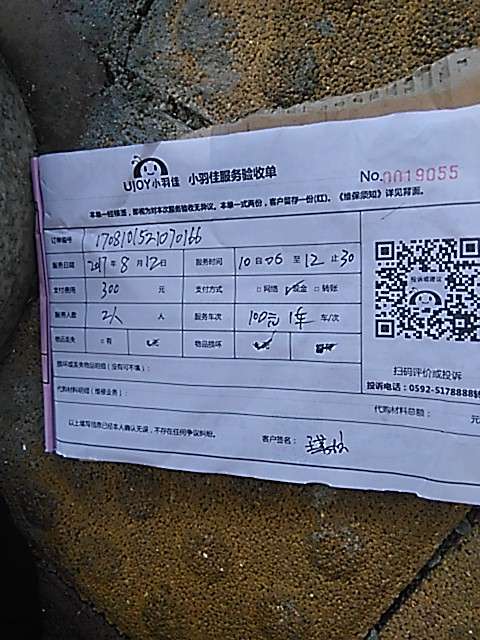 UJOY小羽佳 小羽佳服务验收单
No.0019055
本单一经签返,即视为对本次服务验收无异议。本单一式两份,客户留存一份(红)。《维保须知》详见背面。
订单编号
服务日期 2017年8月12日 服务时间 10 至12止30
支付费用 300 元 支付方式 □网络 现金 □转账
服务人数 2人 人 服务车次 100元 1车 车/次
物品丢失 □有 物品损坏
损坏或丢失物品明细(没有可不填):
代购材料明细(维修业务):
代购材料总额: 元
以上填写信息已经本人确认无误,不存在任何争议纠纷。
客户签名:
投诉或建议
扫码评价或投诉
投诉电话:0592-5178888